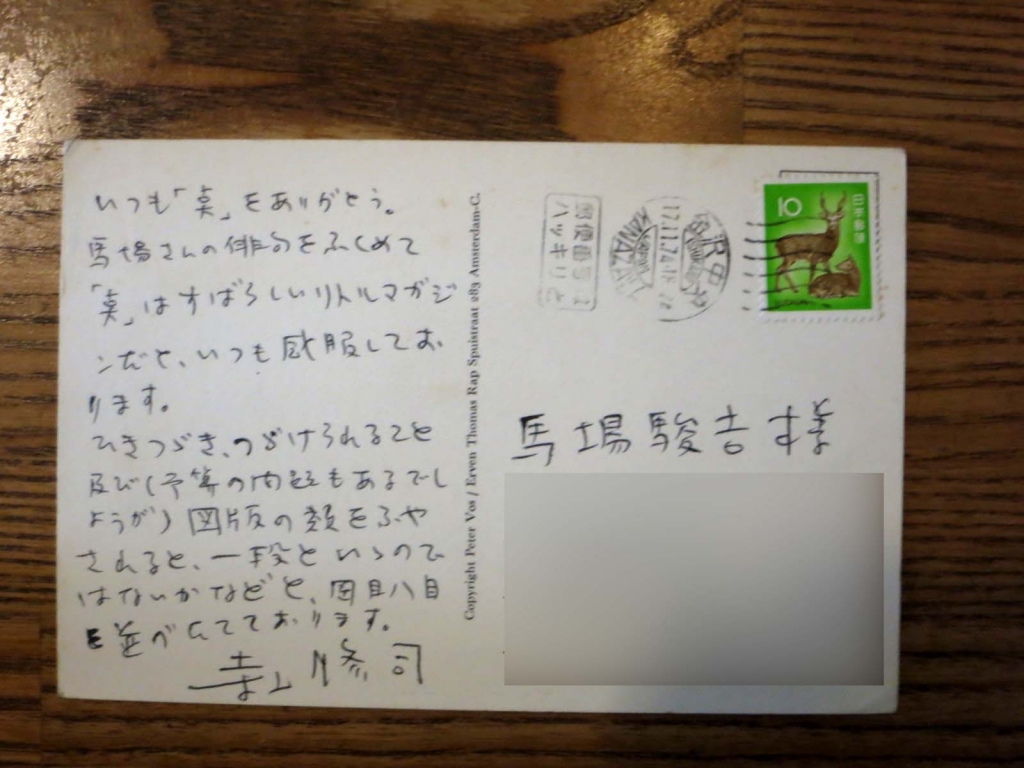 いつも「点」をありがとう。
馬場さんの俳句をふくめて
「点」はすばらしいリトルマガジ
ンだと、いつも感服してお
ります。
ひきつづき、つづけられること
及び(予算の内題もあるでし
ょうが)図版の類をふや
されると、一段といいので
はないかなどと、岡目八目
を並べたてております。
寺山修司
Copyright Peter Vos / Erven Thomas Rap Spuistraat 283 Amsterdam-C.
郵便番号は
ハッキリと
17.11.74
KANAZAWA
10
日本郵便
馬場駿吉様